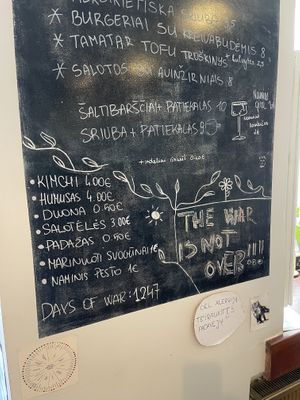 * BURGERIAI SU KREIVABUDĖMIS 8
* TAMATAR TOFU TROŠKINYS
* SALOTOS SU AVINŽIRNIAIS 8
ŠALTIBARŠČIAI + PATIEKALAS 10
SRIUBA + PATIEKALAS 9
• KIMCHI 4.00€
• HUMUSAS 4.00€
• DUONA 0.50€
• SALOTĖLĖS 3.00€
• PADAŽAS 0.50€
• MARINUOTI SVOGŪNAI 1€
• NAMINIS PESTO 1€
THE WAR
IS NOT
OVER!!!
DAYS OF WAR: 1247
DĖL ALERGIJŲ
TEIRAUKITĖS